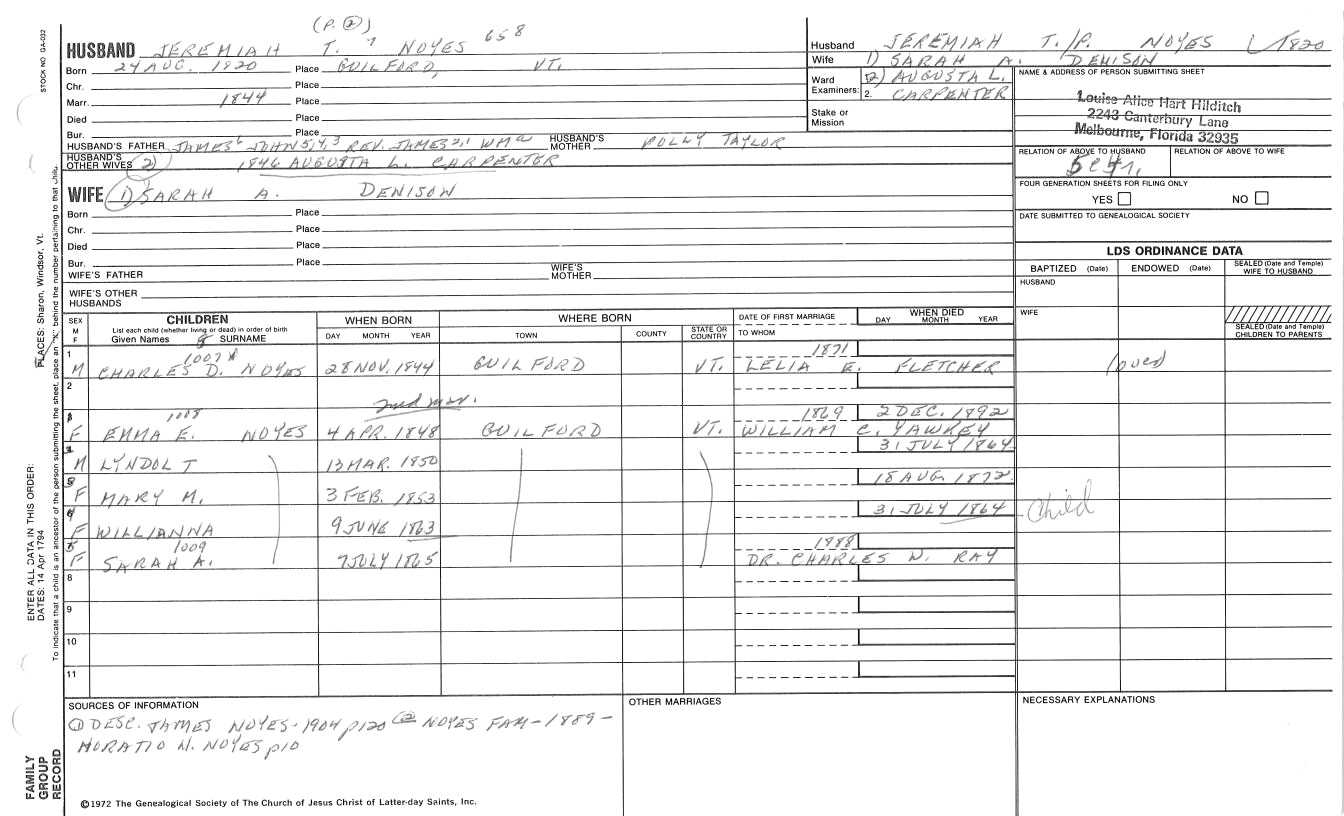 (P. ②)
HUSBAND JEREMIAH T. NOYES 658
Born 24 AUG. 1820 Place GUILFORD, VT.
Chr. Place
Marr. 1844 Place
Died Place
Bur. Place
HUSBAND'S FATHER JAMES 6 JOHN 5,4,3 REV. JAMES 2,1 WM HUSBAND'S MOTHER POLLY TAYLOR
HUSBAND'S OTHER WIVES 2) 1846 AUGUSTA L. CARPENTER
WIFE 1) SARAH A. DENISON
Born Place
Chr. Place
Died Place
Bur. Place
WIFE'S FATHER WIFE'S MOTHER
WIFE'S OTHER HUSBANDS
Husband JEREMIAH T./P. NOYES 1820
Wife 1) SARAH A. DENISON
Ward Examiners: 2) AUGUSTA L.
2. CARPENTER
Stake or Mission
NAME & ADDRESS OF PERSON SUBMITTING SHEET
Louise Alice Hart Hilditch
2243 Canterbury Lane
Melbourne, Florida 32935
RELATION OF ABOVE TO HUSBAND RELATION OF ABOVE TO WIFE
FOUR GENERATION SHEETS FOR FILING ONLY
YES NO
DATE SUBMITTED TO GENEALOGICAL SOCIETY
LDS ORDINANCE DATA
BAPTIZED (Date) ENDOWED (Date) SEALED (Date and Temple) WIFE TO HUSBAND
HUSBAND
WIFE
SEALED (Date and Temple) CHILDREN TO PARENTS
SEX M F CHILDREN WHEN BORN WHERE BORN DATE OF FIRST MARRIAGE WHEN DIED
List each child (whether living or dead) in order of birth
Given Names SURNAME DAY MONTH YEAR TOWN COUNTY STATE OR COUNTRY TO WHOM DAY MONTH YEAR
1 1007 1871
M CHARLES D. NOYES 28 NOV. 1844 GUILFORD VT. LELIA E. FLETCHER
2
2nd mar.
1008 1869 2 DEC. 1892
F EMMA E. NOYES 4 APR. 1848 GUILFORD VT. WILLIAM C. YAWKEY
31 JULY 1864
M LYNDOL T 13 MAR. 1850
18 AUG. 1872
F MARY M. 3 FEB. 1853
31 JULY 1864 Child
F WILLIANNA 9 JUNE 1863
1009 1888
F SARAH A. 7 JULY 1865 DR. CHARLES W. RAY
8
9
10
11
SOURCES OF INFORMATION
① DESC. JAMES NOYES-1904 p120 ② NOYES FAM-1889-
HORATIO N. NOYES p10
OTHER MARRIAGES
NECESSARY EXPLANATIONS
©1972 The Genealogical Society of The Church of Jesus Christ of Latter-day Saints, Inc.
STOCK NO GA-032
PLACES: Sharon, Windsor, Vt.
ENTER ALL DATA IN THIS ORDER:
DATES: 14 Apr 1794
To indicate that a child is an ancestor of the person submitting the sheet, place an "X" behind the number pertaining to that child.
FAMILY GROUP RECORD